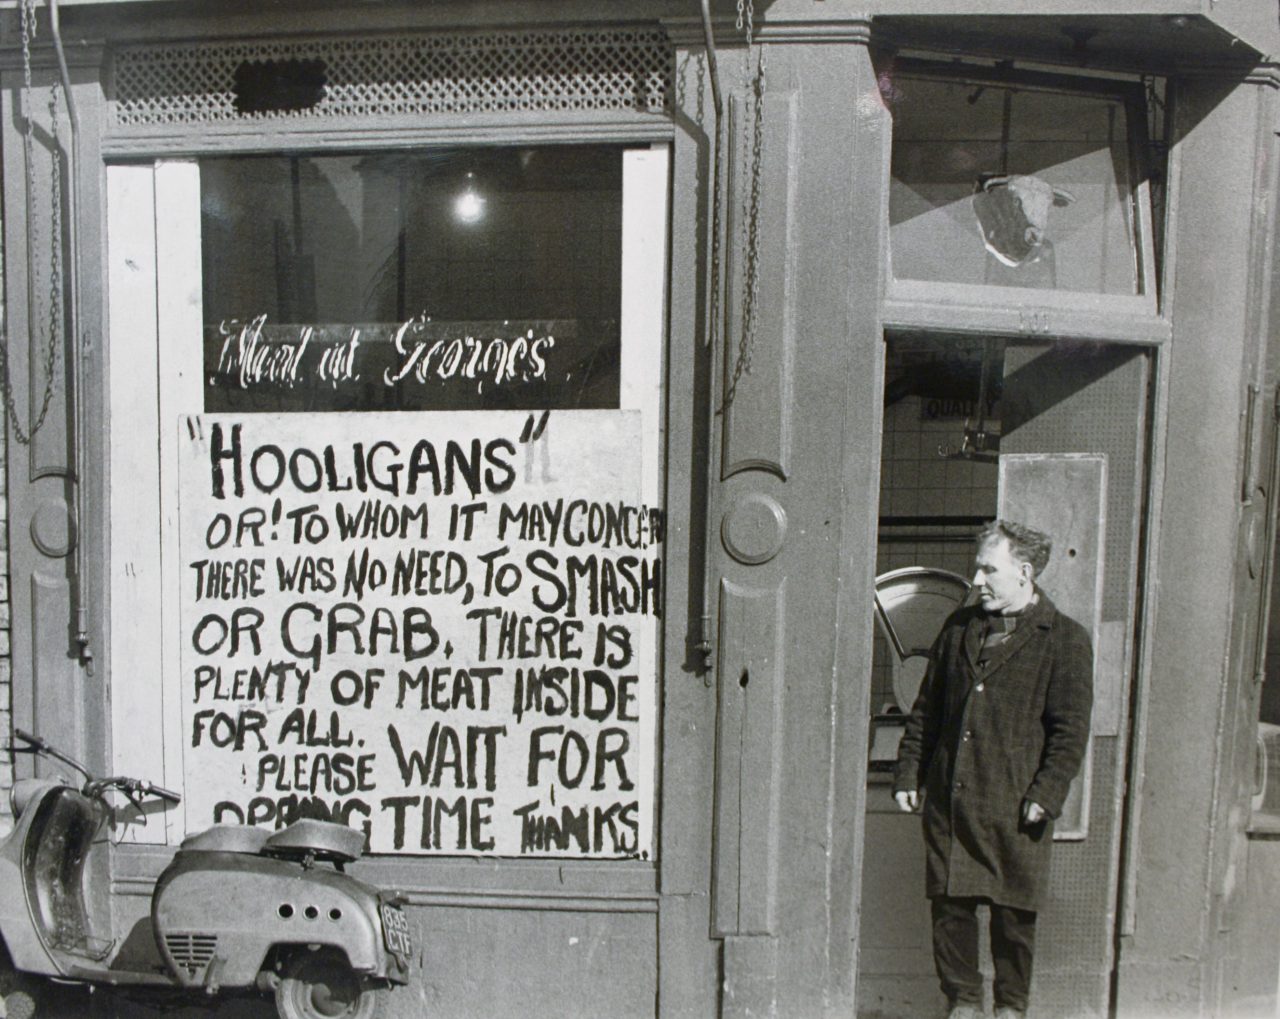 Meat at George's
"HOOLIGANS"
OR! TO WHOM IT MAY CONCERN
THERE WAS NO NEED, TO SMASH
OR GRAB. THERE IS
PLENTY OF MEAT INSIDE
FOR ALL.
PLEASE WAIT FOR
OPENING TIME THANKS.
QUALITY
835
CTF